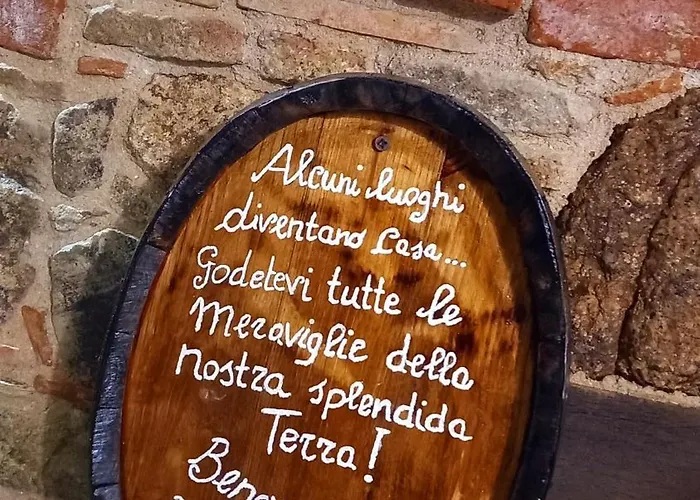 Alcuni luoghi
diventano casa...
Godetevi tutte le
Meraviglie della
nostra splendida
Terra!